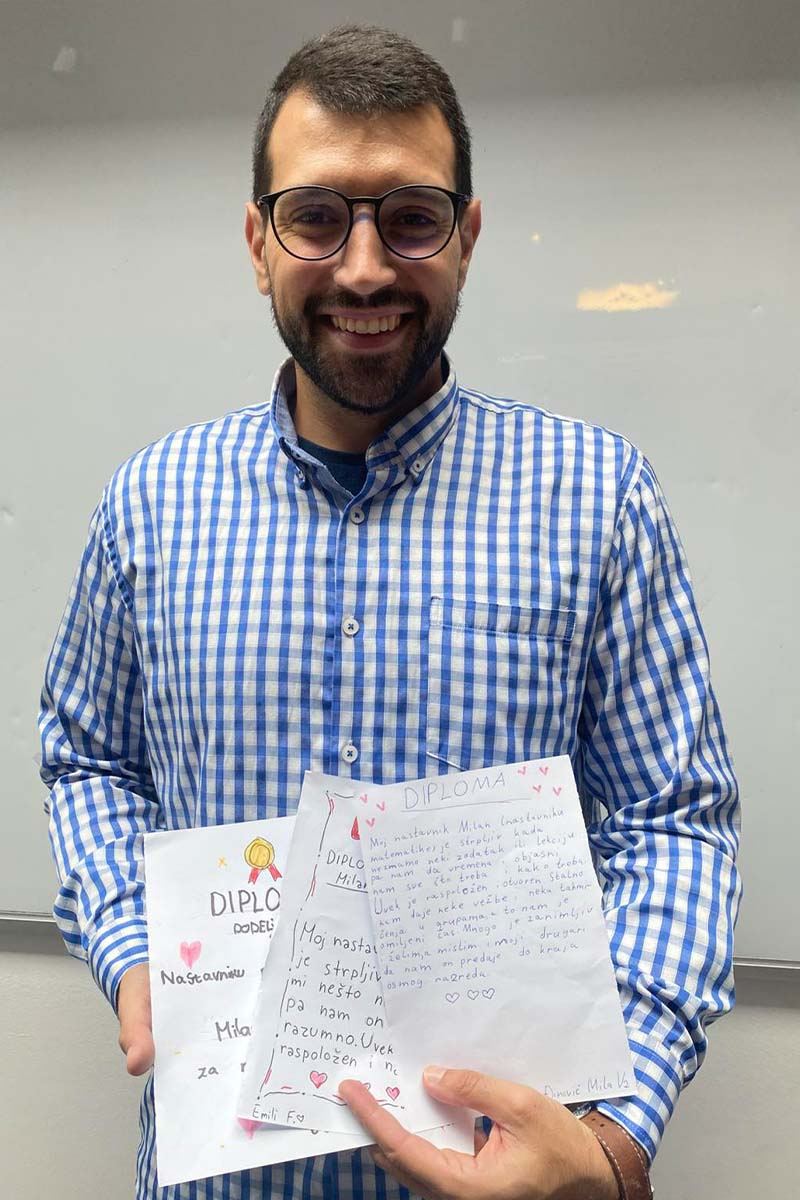 DIPLO
DODELJ
Nastavniku
Mila
za
DIPLO
Milan
Moj nasta
je strpljiv
mi nešto n
pa nam on
razumno. Uvek
raspoložen i n
Emili F.
DIPLOMA
Moj nastavnik Milan (nastavnik
matematike) je strpljiv kada
neznamo neki zadatak ili lekciju
pa nam da vremena i objasni
nam sve što treba i kako treba.
Uvek je raspoložen i otvoren. Stalno
nam daje neke vežbe i neka takmi-
čenja u grupama, a to nam je
omiljeni čas. Mnogo je zanimljiv
i želim ja mislim i moji drugari
da nam on predaje do kraja
osmog razreda.
Mila V2